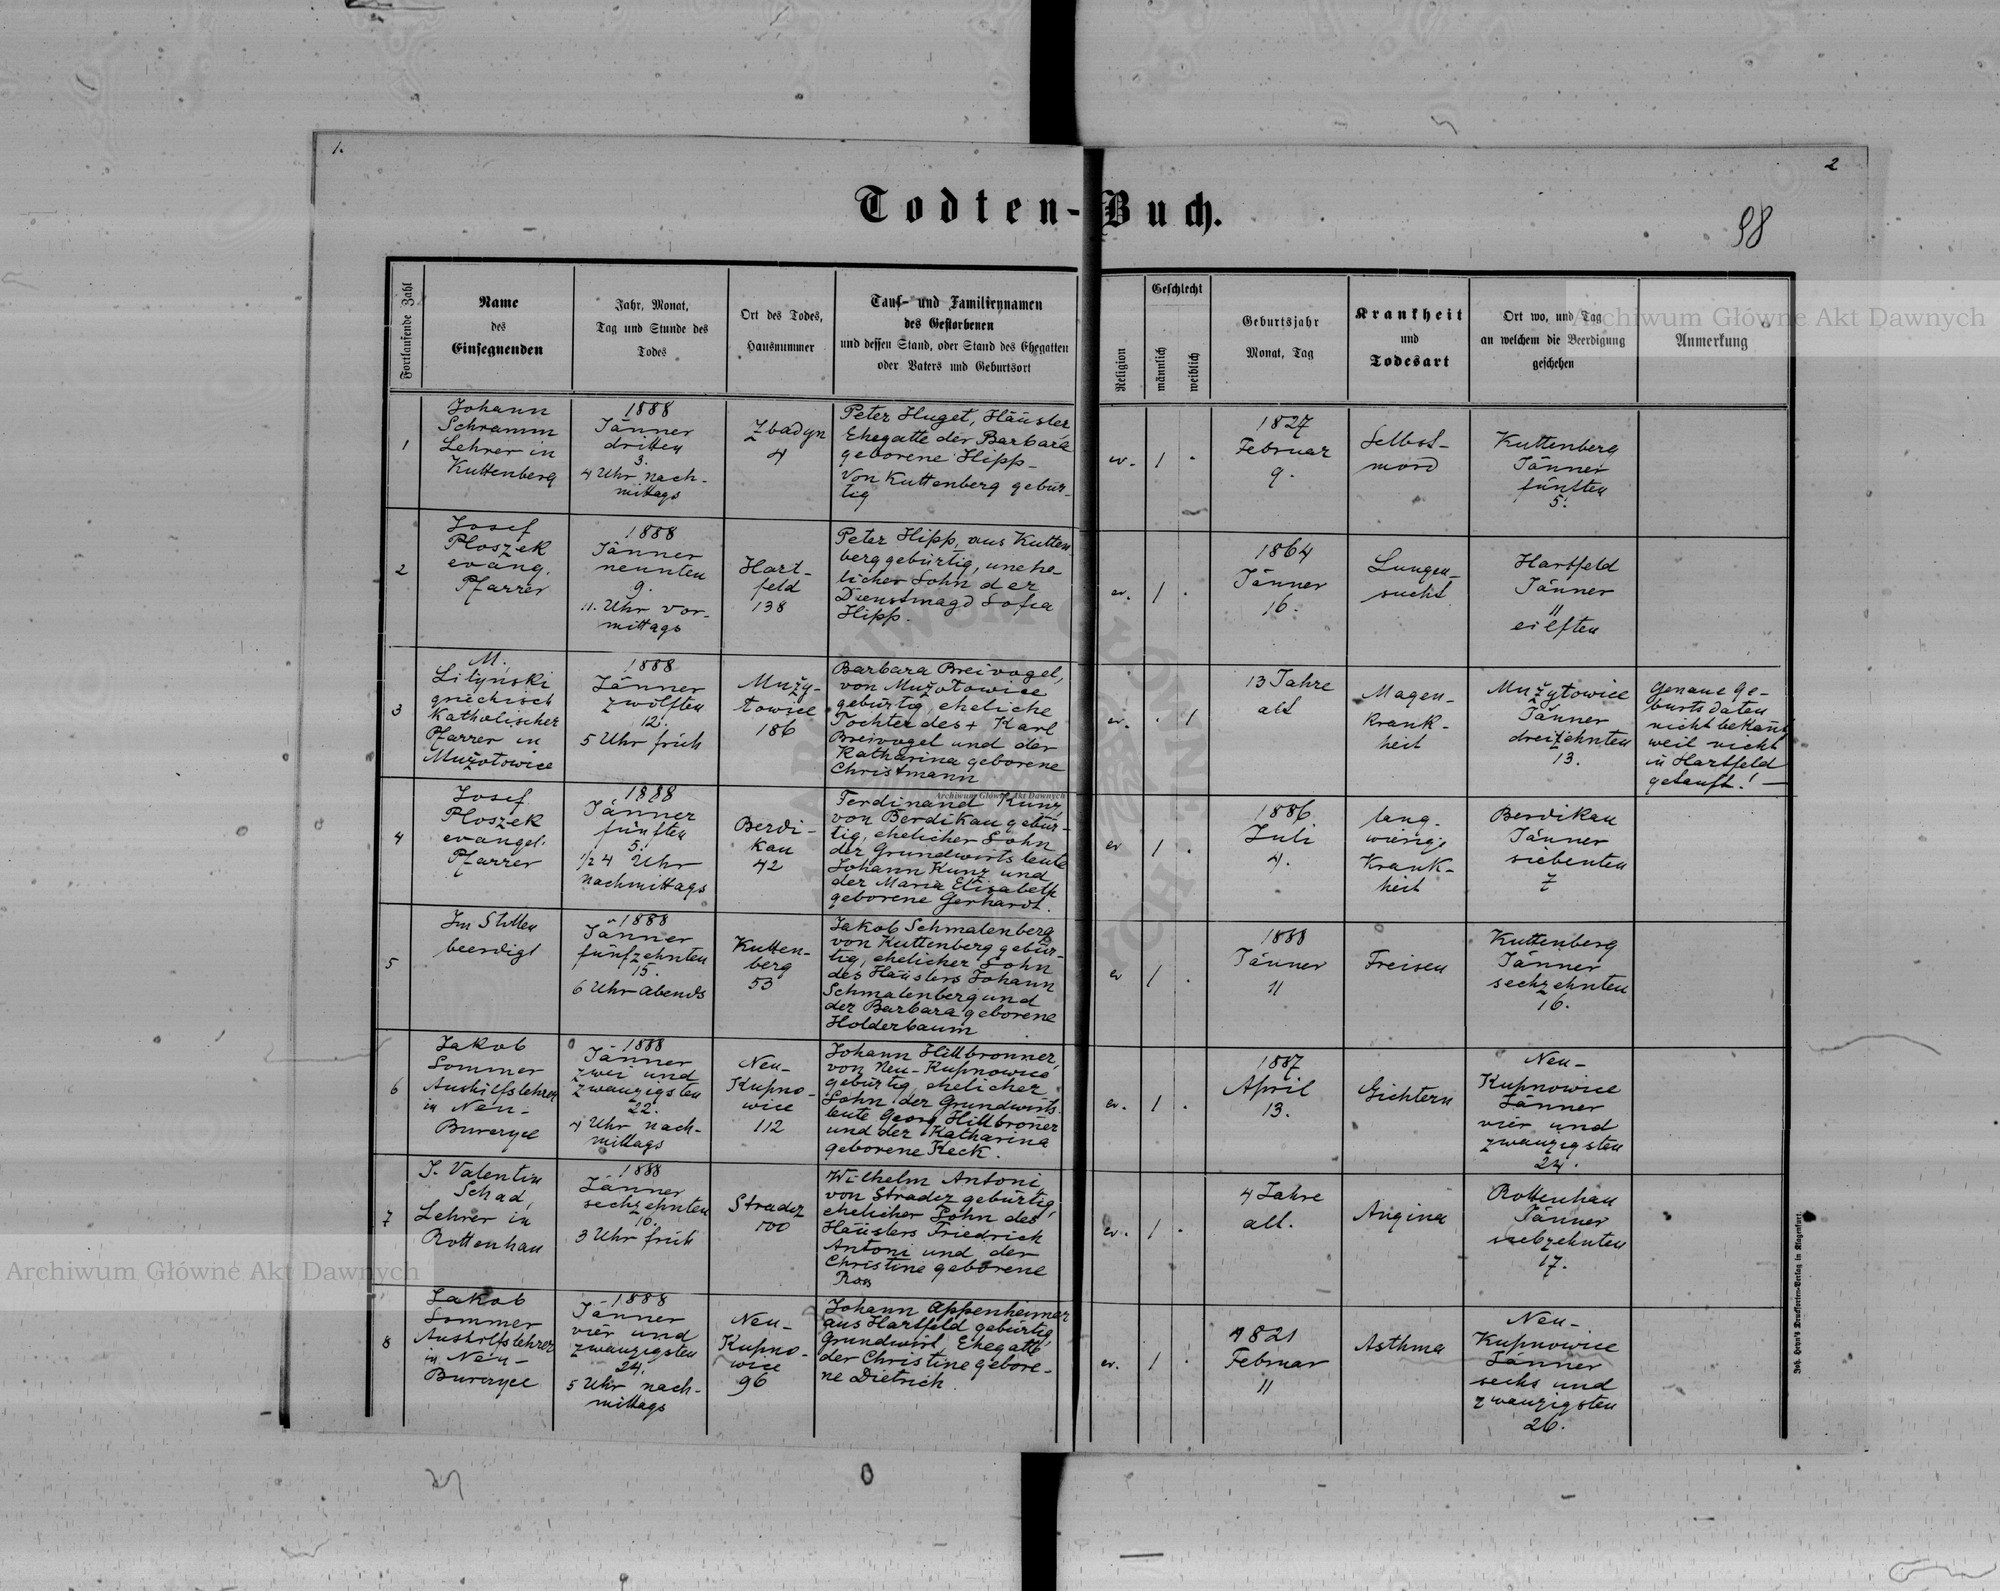 1.
2
Todten-Buch.
98
Fortlaufende Zahl
Name
des
Einsegnenden
Jahr, Monat,
Tag und Stunde des
Todes
Ort des Todes,
Hausnummer
Tauf- und Familiennamen
des Gestorbenen
und dessen Stand, oder Stand des Ehegatten
oder Vaters und Geburtsort
Religion
Geschlecht
männlich
weiblich
Geburtsjahr
Monat, Tag
Krankheit
und
Todesart
Ort wo, und Tag
an welchem die Beerdigung
geschehen
Anmerkung
1
Johann
Schramm
Lehrer in
Kuttenberg
1888
Jänner
dritten
3.
4 Uhr nach-
mittags
Zbadyn
4
Peter Huget, Häusler
Ehegatte der Barbara
geborene Hipp-
Von Kuttenberg gebür-
tig
ev.
1
.
1827
Februar
9.
Selbst-
mord
Kuttenberg
Jänner
fünften
5.
2
Josef
Ploszek
evang.
Pfarrer
1888
Jänner
neunten
9.
11. Uhr vor-
mittags
Hart-
feld
138
Peter Hipp, aus Kutten-
berg gebürtig, unehe-
licher Sohn der
Dienstmagd Sofia
Hipp.
ev.
1
.
1864
Jänner
16.
Lungen-
sucht
Hartfeld
Jänner
11
eilften
3
M.
Lityński
griechisch
Katholischer
Pfarrer in
Mużotowice
1888
Jänner
zwölften
12.
5 Uhr früh
Muży-
towice
186
Barbara Breivogel,
von Mużotowice
gebürtig, eheliche
Tochter des + Karl
Breivogel und der
Katharina geborene
Christmann
ev.
.
1
13 Jahre
alt
Magen-
krank-
heit
Mużytowice
Jänner
dreizehnten
13.
Genaue Ge-
burtsdaten
nicht bekannt
weil nicht
in Hartfeld
getauft! —
4
Josef
Ploszek
evangel.
Pfarrer
1888
Jänner
fünften
5.
1/2 4 Uhr
nachmittags
Berdi-
kau
42
Ferdinand Kunz,
von Berdikau gebür-
tig, ehelicher Sohn
der Grundwirtsleute
Johann Kunz und
der Maria Elisabeth
geborene Gerhardt.
ev
1
.
1886
Juli
4.
lang-
wierige
Krank-
heit
Berdikau
Jänner
siebenten
7
5
Im Stillen
beerdigt
1888
Jänner
fünfzehnten
15.
6 Uhr abends
Kutten-
berg
53
Jakob Schmalenberg
von Kuttenberg gebür-
tig, ehelicher Sohn
des Häuslers Johann
Schmalenberg und
der Barbara geborene
Holderbaum
ev
1
.
1888
Jänner
11
Freisen
Kuttenberg
Jänner
sechzehnten
16.
6
Jakob
Sommer
Aushilfslehrer
in Neu-
Burczyce
1888
Jänner
zwei und
zwanzigsten
22.
4 Uhr nach-
mittags
Neu-
Kupno-
wice
112
Johann Hillbronner,
von Neu-Kupnowice
gebürtig, ehelicher
Sohn der Grundwirts-
leute Georg Hillbroner
und der Katharina
geborene Keck.
ev.
1
.
1887
April
13.
Gichtern
Neu-
Kupnowice
Jänner
vier und
zwanzigsten
24.
7
J. Valentin
Schad,
Lehrer in
Rottenhan
1888
Jänner
sechzehnten
16.
3 Uhr früh
Stradcz
100
Wilhelm Antoni,
von Stradcz gebürtig,
ehelicher Sohn des
Häuslers Friedrich
Antoni und der
Christine geborene
Ross
ev.
1
.
4 Jahre
alt.
Angina
Rottenhan
Jänner
siebzehnten
17.
8
Jakob
Sommer
Aushilfslehrer
in Neu-
Burczyce
1888
Jänner
vier und
zwanzigsten
24.
5 Uhr nach-
mittags
Neu-
Kupno-
wice
96
Johann Appenheimer
aus Hartfeld gebürtig,
Grundwirt, Ehegatte
der Christine gebore-
ne Dietrich
ev.
1
.
1821
Februar
11
Asthma
Neu-
Kupnowice
Jänner
sechs und
zwanzigsten
26.
Joh. Leon's Drucksorten-Verlag in Klagenfurt.
Archiwum Główne Akt Dawnych
Archiwum Główne Akt Dawnych
Archiwum Główne Akt Dawnych